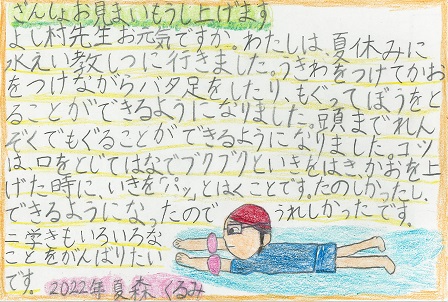 ざんしょお見まいもうし上げます
よし村先生お元気ですか。わたしは、夏休みに
水えい教しつに行きました。うきわをつけてかお
をつけながらバタ足をしたり、もぐってぼうをと
ることができるようになりました。頭までれん
ぞくでもぐることができるようになりました。コツ
は、口をとじてはなでブクブクといきをはき、かおを上
げた時に、いきを「パッ」とはくことです。たのしかったし、
できるようになったのでうれしかったです。
二学きもいろいろな
ことをがんばりたい
です。2022年夏森くるみ